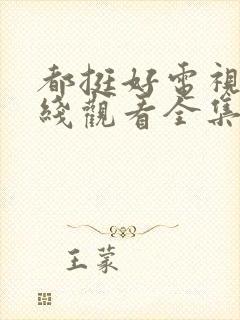 都挺好電視
綫觀看全集
王蒙